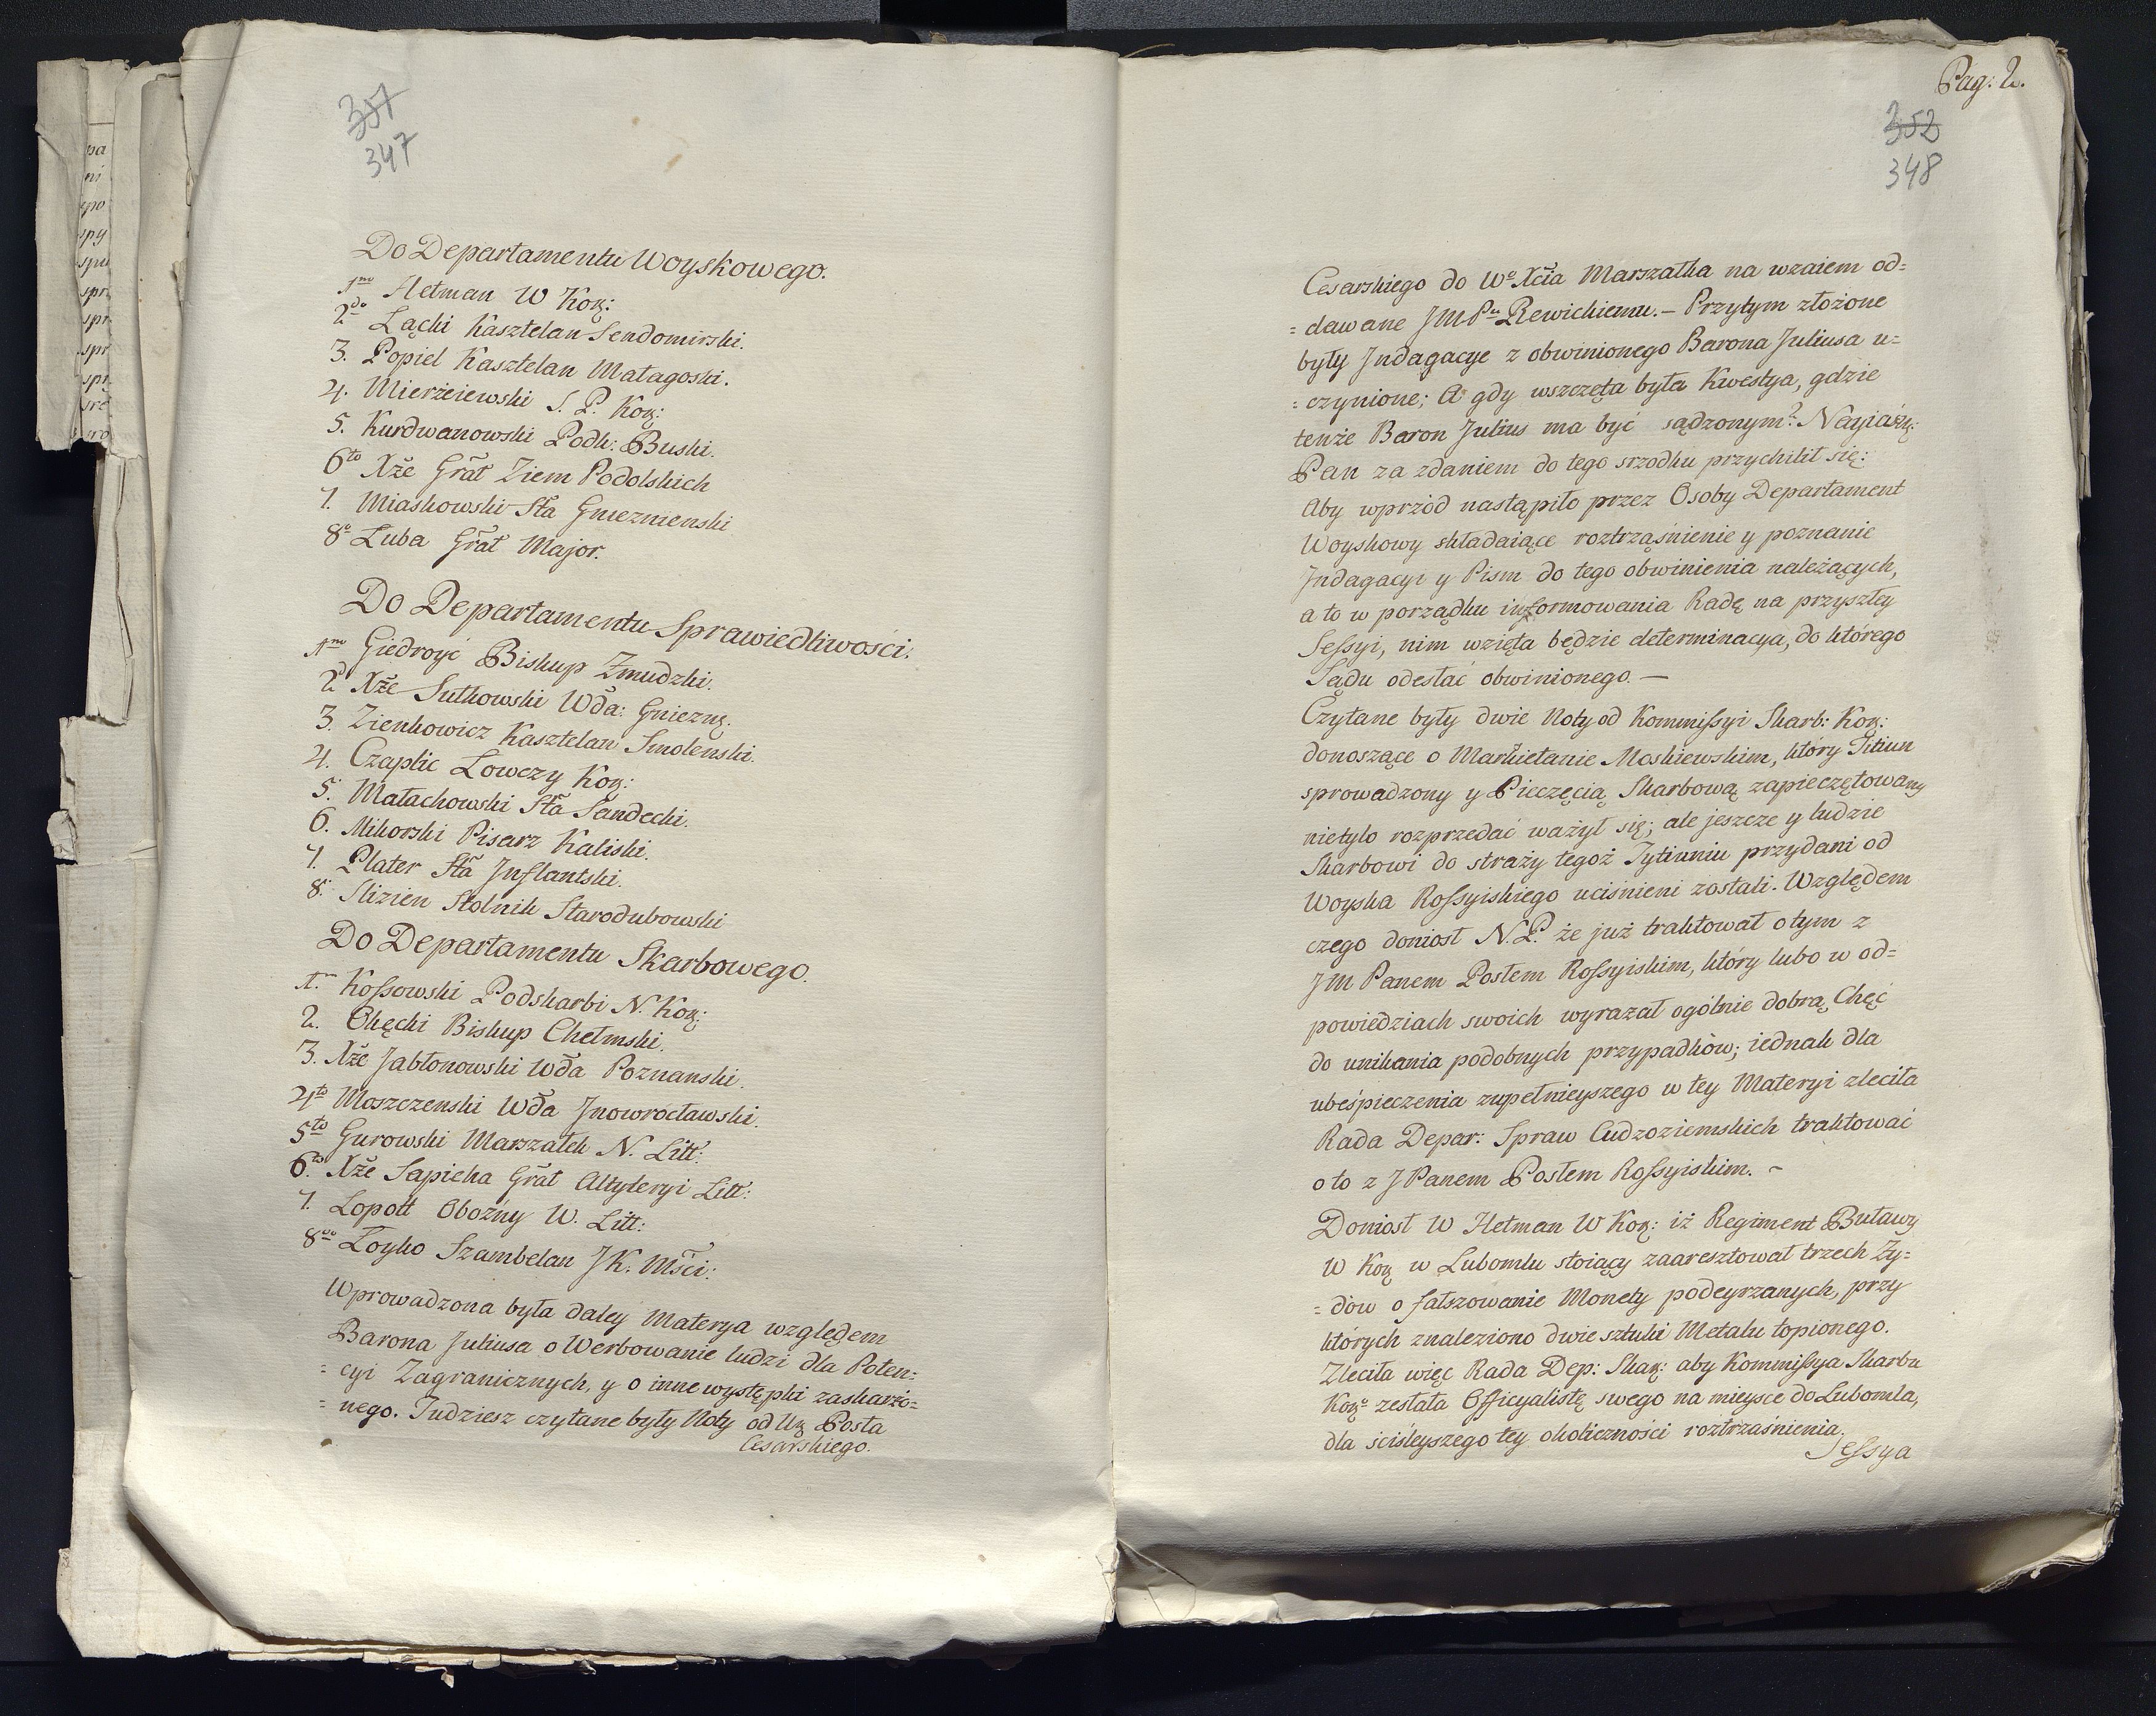 357
347
Do Departamentu Woyskowego.
1mo Hetman W Kor:
2do Łącki Kasztelan Sendomirski.
3. Popiel Kasztelan Małagoski.
4. Mierżeiewski S. P. Kor:
5. Kurdwanowski Podk: Buski.
6to Xże Grał Ziem Podolskich
7. Miaskowski Sta Gnieznienski
8o Luba Grał Major.
Do Departamentu Sprawiedliwości.
1mo Giedroyć Biskup Zmudzki.
2. Xże Sułkowski Wda: Gniezn.
3. Zienkowicz Kasztelan Smolenski.
4. Czaplic Łowczy Kor:
5. Małachowski Sta Sandecki.
6. Mikorski Pisarz Kaliski.
7. Plater Sta Inflantski.
8. Slizien Stolnik Starodubowski
Do Departamentu Skarbowego.
1mo Kossowski Podskarbi N. Kor:
2. Okęcki Biskup Chełmski.
3. Xże Jabłonowski Wda Poznanski.
4to Moszczenski Wda Jnowrocławski.
5to Gurowski Marszałek N. Litt:
6to Xże Sapieha Grał Altyleryi Litt:
7. Łopott Oboźny W. Litt:
8vo Łoyko Szambelan JK. Mści:
Wprowadzona była daley Materya względem
Barona Juliusa o Werbowanie ludzi dla Poten=
=cyi Zagranicznych, y o inne występki zaskarżo=
=nego. Tudziesz czytane były Noty od Ur Posła
Cesarskiego.
Pag: 2.
352
348
Cesarskiego do Wo Xcia Marszałka na wzaiem od=
=dawane JMPu Rewickiemu. – Przytym złożone
były Jndagacye z obwinionego Barona Juliusa u=
=czynione; A gdy wszczęta była Kwestya, gdzie
tenże Baron Julius ma być sądzonym? Nayiaśń:
Pan za zdaniem do tego srzodku przychilił się:
Aby wprzód nastąpiło przez Osoby Departament
Woyskowy składaiące roztrząśnienie y poznanie
Jndagacyi y Pism do tego obwinienia należących,
a to w porządku informowania Radę na przyszłey
Sessyi, nim wzięta będzie determinacya, do którego
Sądu odesłać obwinionego. —
Czytane były dwie Noty od Kommissyi Skarb: Kor:
donoszące o Markietanie Moskiewskim, który Titiun
sprowadzony y Pieczęcią Skarbową zapieczętowany
nietylo rozprzedać ważył się; ale jeszcze y ludzie
Skarbowi do straży tegoż Tytiuniu przydani od
Woyska Rossyiskiego uciśnieni zostali. Względem
czego doniosł N.P. że już traktował o tym z
JM Panem Posłem Rossyiskim, który lubo w od=
powiedziach swoich wyrazał ogólnie dobrą Chęć
do unikania podobnych przypadków; iednak dla
ubeśpieczenia zupełnieyszego w tey Materyi zleciła
Rada Depar: Spraw Cudzoziemskich traktować
o to z J Panem Posłem Rossyiskim. ~
Doniosł W Hetman W Kor: iż Regiment Buławy
W Kor w Lubomlu stoiący zaaresztował trzech Ży=
=dow o fałszowanie Monety podeyrzanych, przy
których znaleziono dwie sztuki Metalu topionego.
Zleciła więc Rada Dep: Skar: aby Kommissya Skarbu
Koro zesłała Officyalistę swego na mieysce do Lubomla,
dla ściśleyszego tey okoliczności roztrząśnienia.
Sessya